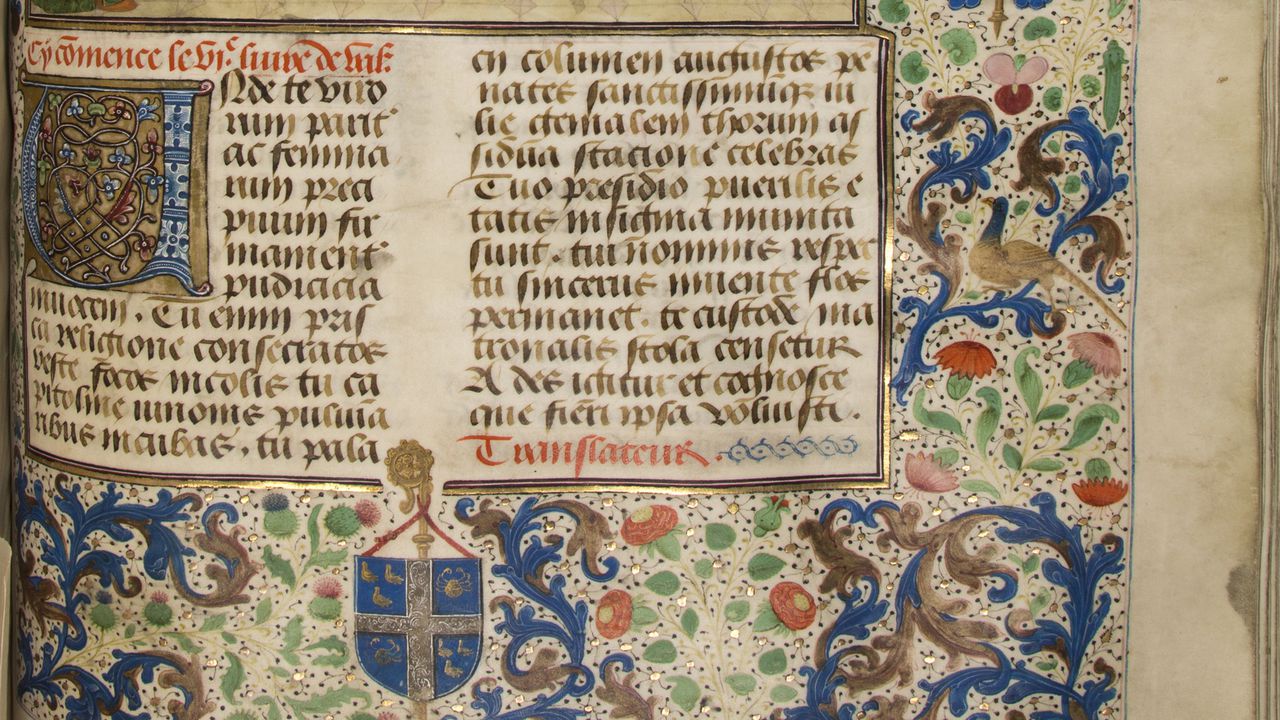 Cy cōmence le vjᵉ liure de vał:
UNde te viro
rum parit᷑
ac femina
rum preci
puum fir
mament᷑
pudicicia
inuocem . Tu enim pris
ca relictione consecratos
veste focos incolis tu ca
pitoline iunonis puluina
ribus incubas . tu pala
cij columen augustos pe
nates sanctissimūq; iu
lie genialem thorum as
sidua stacione celebras
Tuo presidio puerilis e
tatis insignia munita
sunt . tui nominis respec
tu sincerus iuuente flos
permanet . te custode ma
tronalis stola censetur
A des igitur et cognosce
que fieri ipsa voluisti .
Translateur .